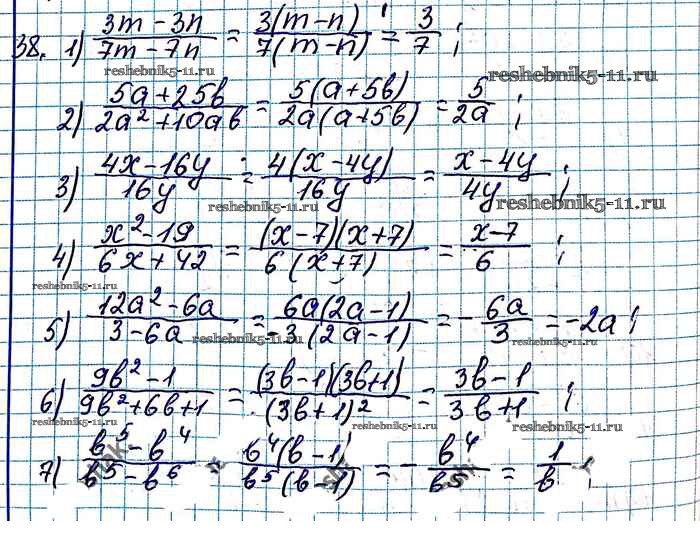 38. 1) (3m - 3n)/(7m - 7n) = 3(m - n)/7(m - n) = 3/7 ;
reshebnik5-11.ru reshebnik5-11.ru
2) (5a + 25b)/(2a² + 10ab) = 5(a + 5b)/2a(a + 5b) = 5/2a ;
3) (4x - 16y)/16y = 4(x - 4y)/16y = (x - 4y)/4y ;
reshebnik5-11.ru reshebnik5-11.ru
4) (x² - 19)/(6x + 42) = (x - 7)(x + 7)/6(x + 7) = (x - 7)/6 ;
reshebnik5-11.ru reshebnik5-11.ru
5) (12a² - 6a)/(3 - 6a) = 6a(2a - 1)/-3(2a - 1) = - 6a/3 = -2a ;
reshebnik5-11.ru reshebnik5-11.ru
6) (9b² - 1)/(9b² + 6b + 1) = (3b - 1)(3b + 1)/(3b + 1)² = (3b - 1)/(3b + 1) ;
reshebnik5-11.ru reshebnik5-11.ru
7) (b⁵ - b⁴)/(b⁵ - b⁶) = b⁴(b - 1)/b⁵(b - 1) = - b⁴/b⁵ = 1/b ;
reshebnik5-11.ru reshebnik5-11.ru